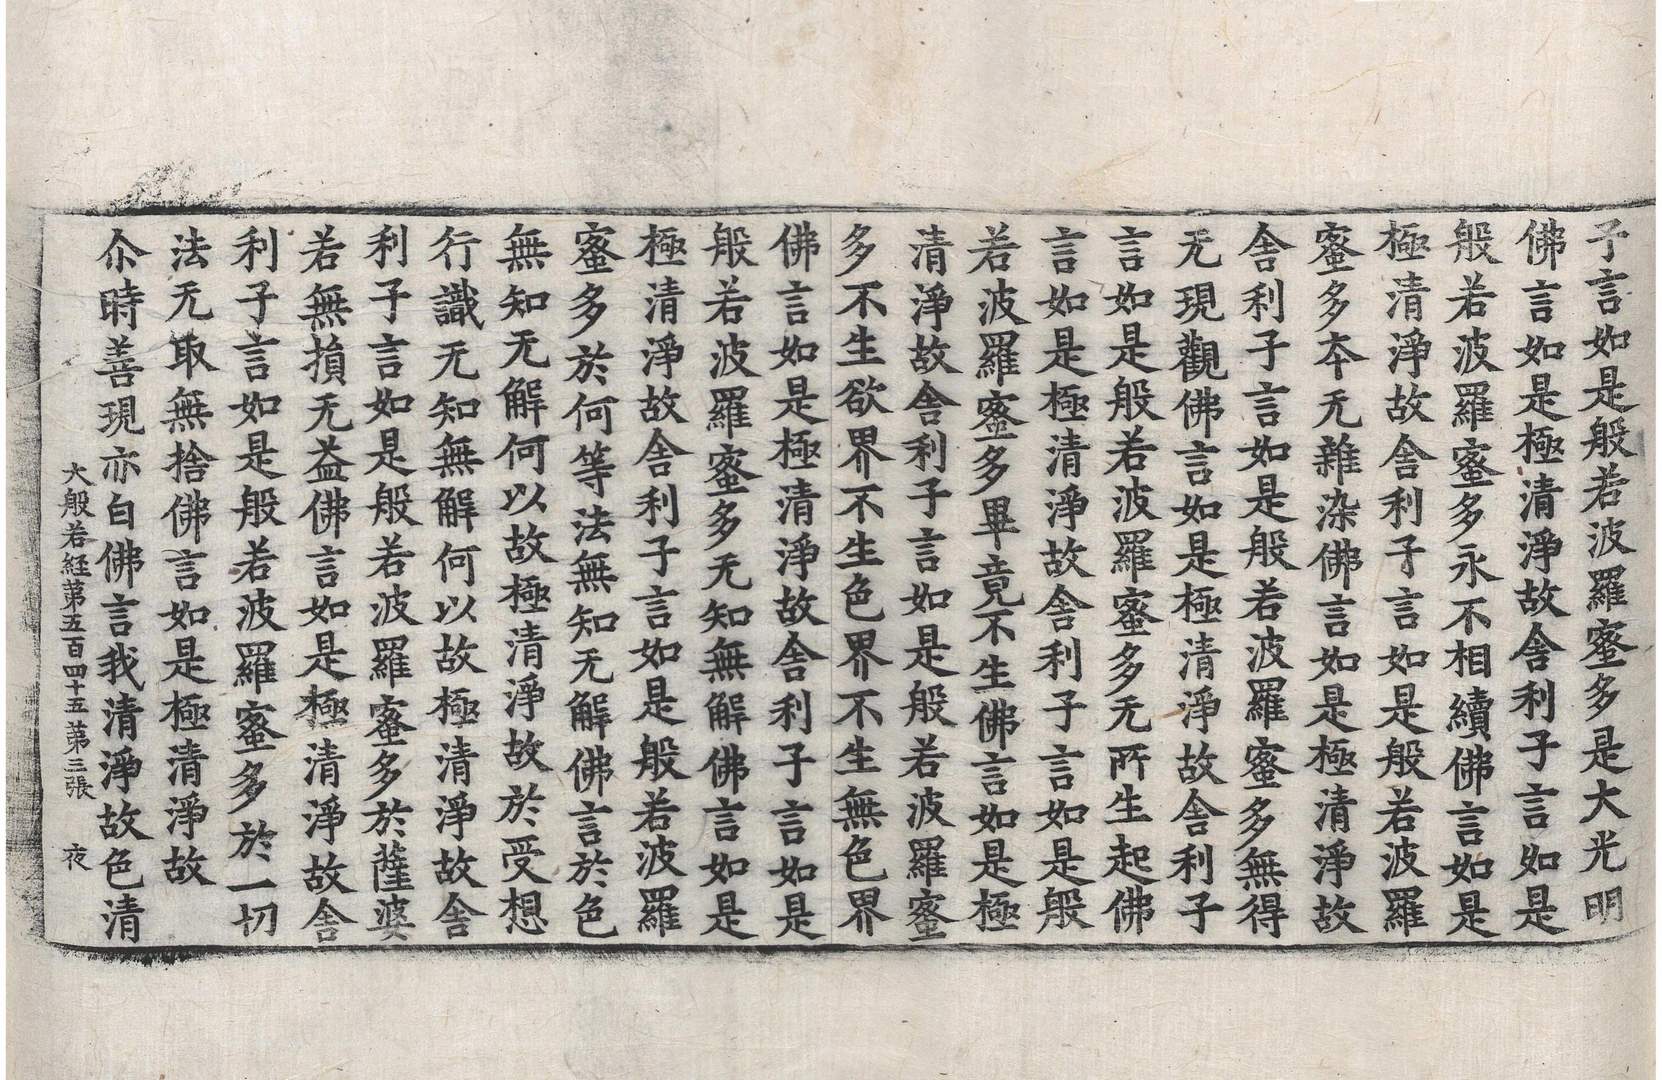 子言如是般若波羅蜜多是大光明
佛言如是極清淨故舍利子言如是
般若波羅蜜多永不相續佛言如是
極清淨故舍利子言如是般若波羅
蜜多夲无雜染佛言如是極清淨故
舍利子言如是般若波羅蜜多無得
无現觀佛言如是極清淨故舍利子
言如是般若波羅蜜多无所生起佛
言如是極清淨故舍利子言如是般
若波羅蜜多畢竟不生佛言如是極
清淨故舍利子言如是般若波羅蜜
多不生欲界不生色界不生無色界
佛言如是極清淨故舍利子言如是
般若波羅蜜多无知無解佛言如是
極清淨故舍利子言如是般若波羅
蜜多於何等法無知无解佛言於色
無知无解何以故極清淨故於受想
行識无知無解何以故極清淨故舍
利子言如是般若波羅蜜多於薩婆
若無損无益佛言如是極清淨故舍
利子言如是般若波羅蜜多於一切
法无取無捨佛言如是極清淨故
尒時善現亦白佛言我清淨故色清
大般若経苐五百四十五 苐三張 夜